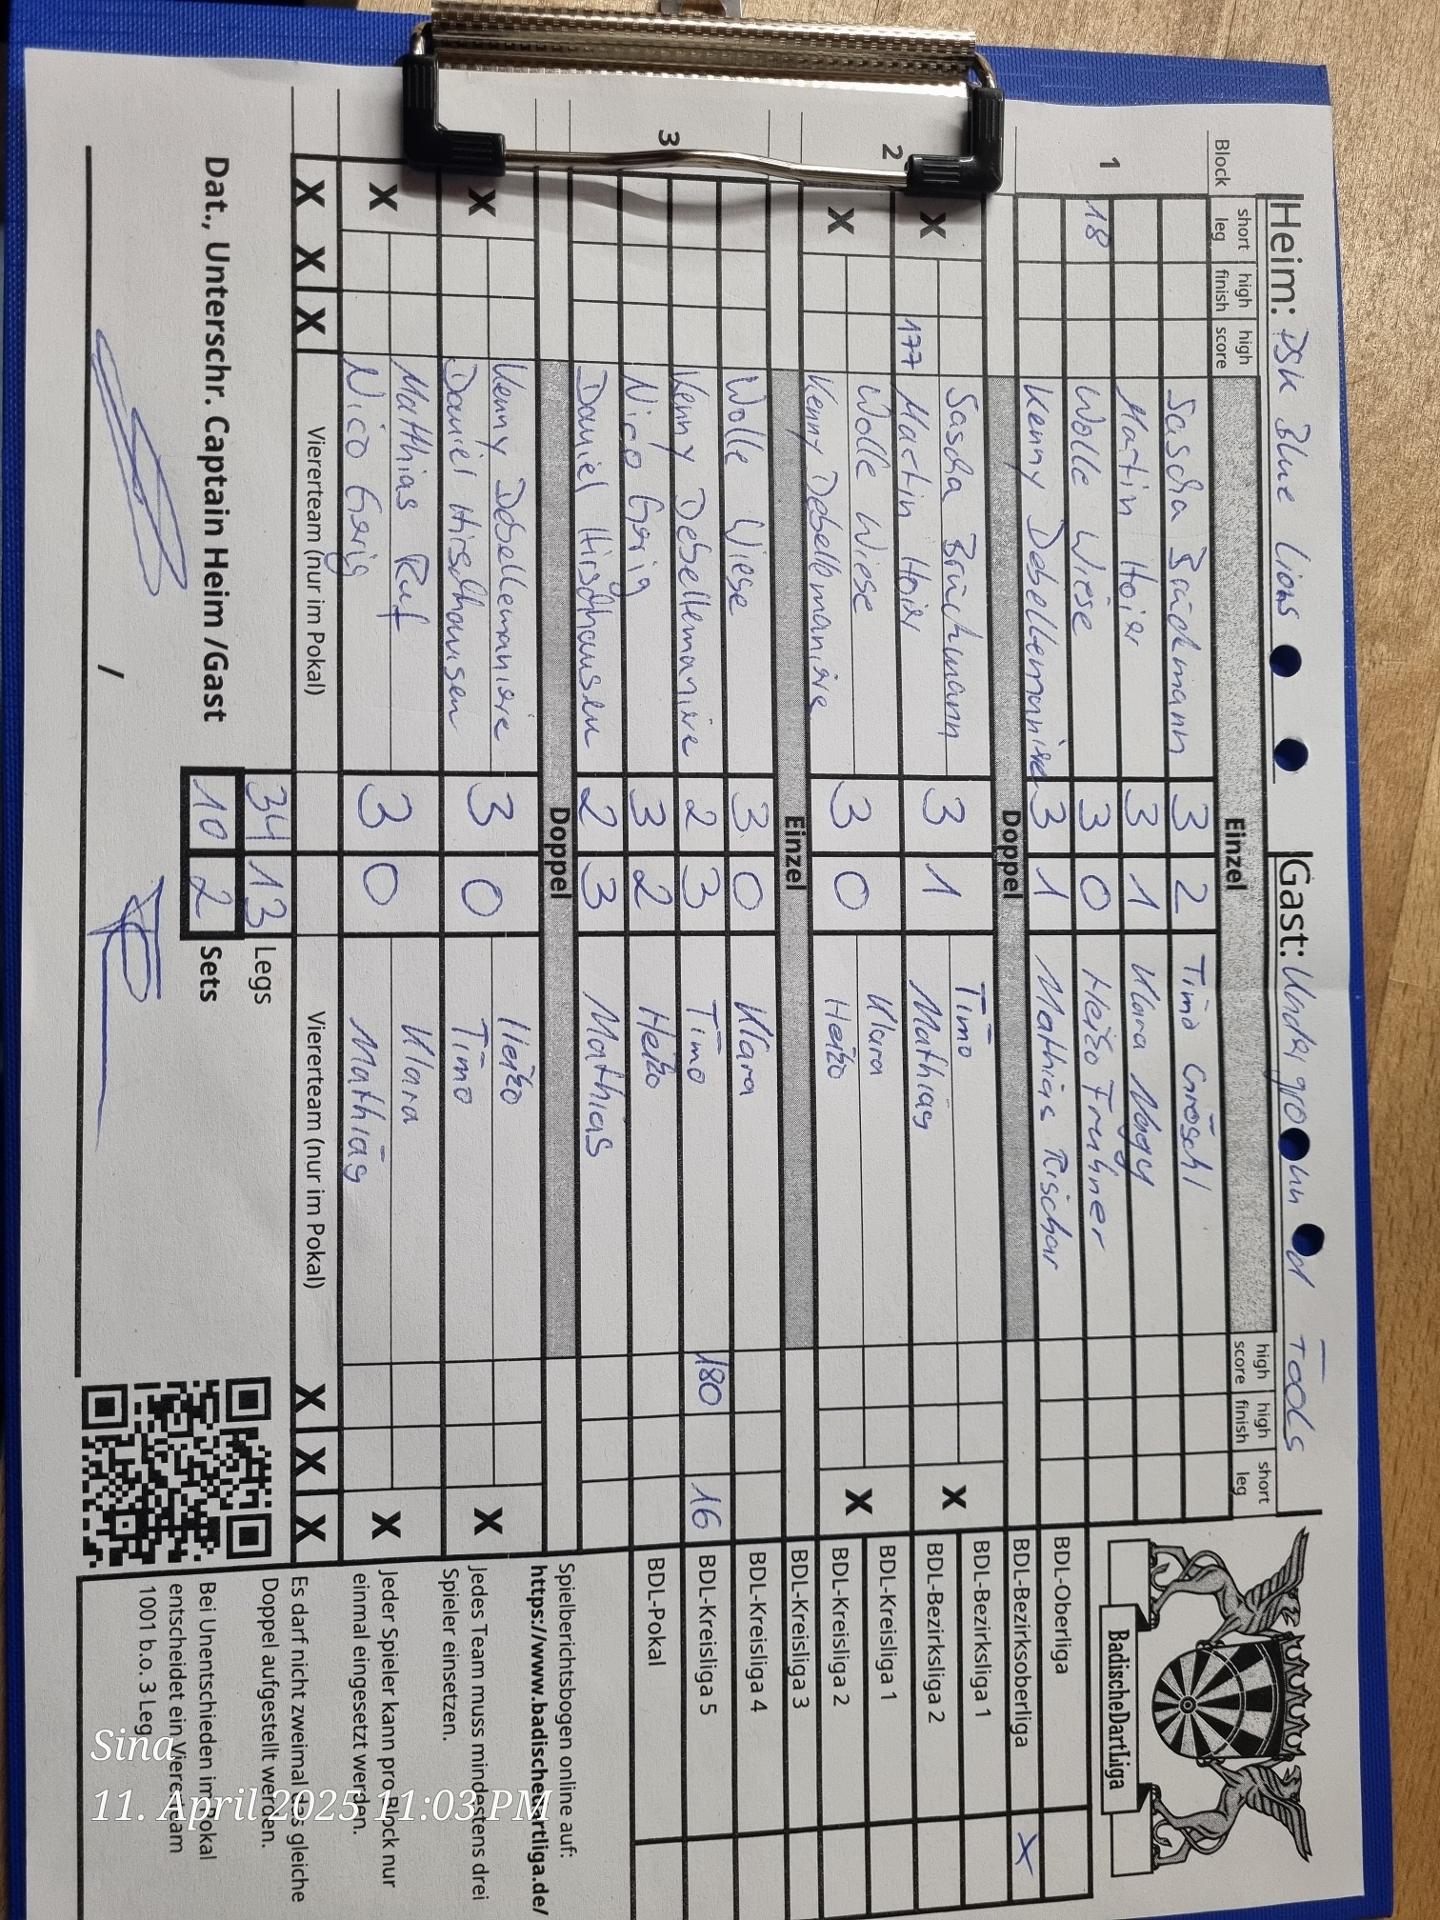 Heim: DSK Blue Lions Gast: Underground Tools
Block short leg high finish high score Einzel high score high finish short leg
Sascha Brückmann 3 2 Timo Gröschl
1 Martin Hoier 3 1 Klara Nagy
18 Wolle Wiese 3 0 Heiko Fruhner
Kenny Debellemanière 3 1 Mathias Rischar
Doppel
X Sascha Brückmann 3 1 Timo X
177 Martin Hoier Mathias
2 X Wolle Wiese 3 0 Klara X
Kenny Debellemanière Heiko
Einzel
Wolle Wiese 3 0 Klara
Kenny Debellemanière 2 3 Timo 180 16
3 Nico Gerig 3 2 Heiko
Daniel Hirschhausen 2 3 Mathias
Doppel
X Kenny Debellemanière 3 0 Heiko X
Daniel Hirschhausen Timo
X Matthias Ruf 3 0 Klara X
Nico Gerig Mathias
X X X Viererteam (nur im Pokal) Viererteam (nur im Pokal) X X X
34 13 Legs
Dat., Unterschr. Captain Heim /Gast 10 2 Sets
/
BadischeDartLiga
BDL-Oberliga
BDL-Bezirksoberliga X
BDL-Bezirksliga 1
BDL-Bezirksliga 2
BDL-Kreisliga 1
BDL-Kreisliga 2
BDL-Kreisliga 3
BDL-Kreisliga 4
BDL-Kreisliga 5
BDL-Pokal
Spielberichtsbogen online auf:
https://www.badischedartliga.de/
Jedes Team muss mindestens drei
Spieler einsetzen.
Jeder Spieler kann pro Block nur
einmal eingesetzt werden.
Es darf nicht zweimal das gleiche
Doppel aufgestellt werden.
Bei Unentschieden im Pokal
entscheidet ein Viererteam
1001 b.o. 3 Leg
Sina
11. April 2025 11:03 PM